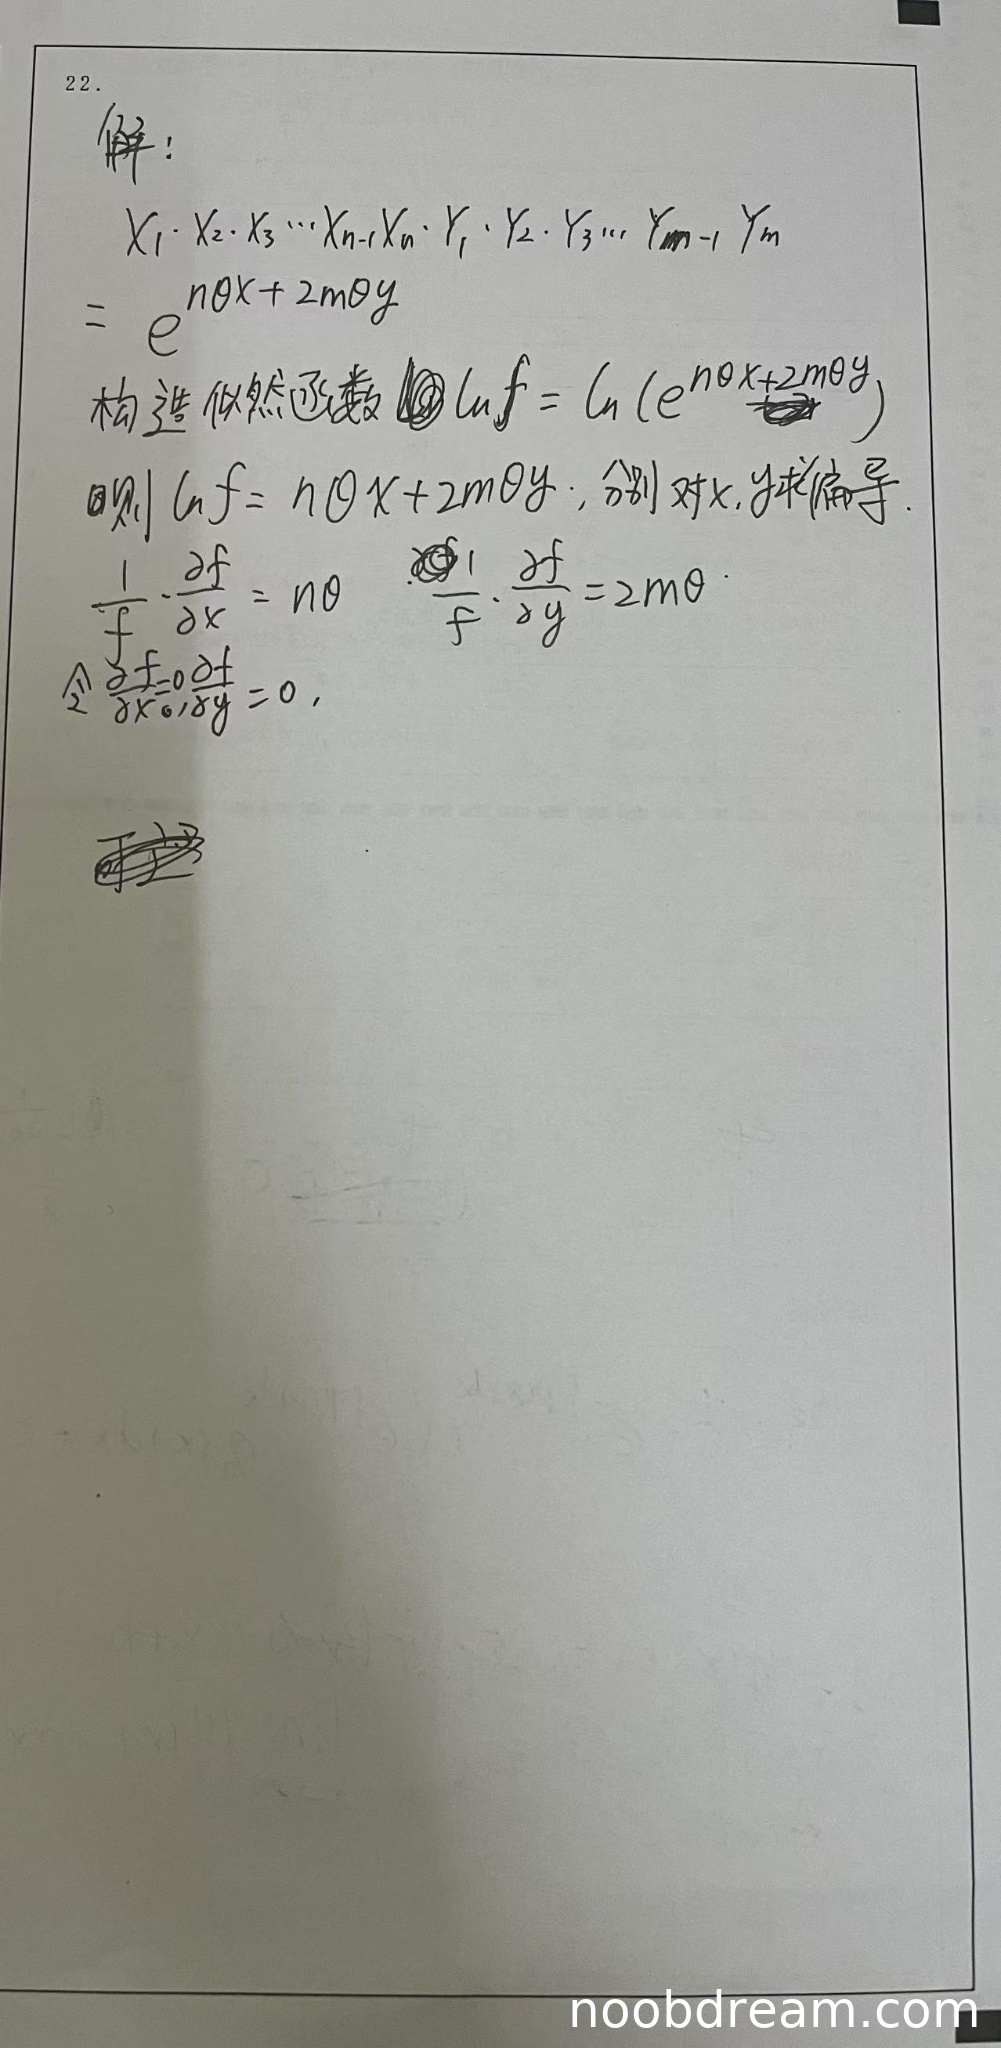 22.
解:
X₁·X₂·X₃···Xₙ₋₁Xₙ·Y₁·Y₂·Y₃···Yₘ₋₁Yₘ
= e^{nθx+2mθy}
构造似然函数 ln f = ln(e^{nθx+2mθy})
则 ln f = nθx+2mθy.,分别对x,y求偏导.
1/f · ∂f/∂x = nθ 1/f · ∂f/∂y = 2mθ
令 ∂f/∂x = 0, ∂f/∂y = 0,
noobdream.com